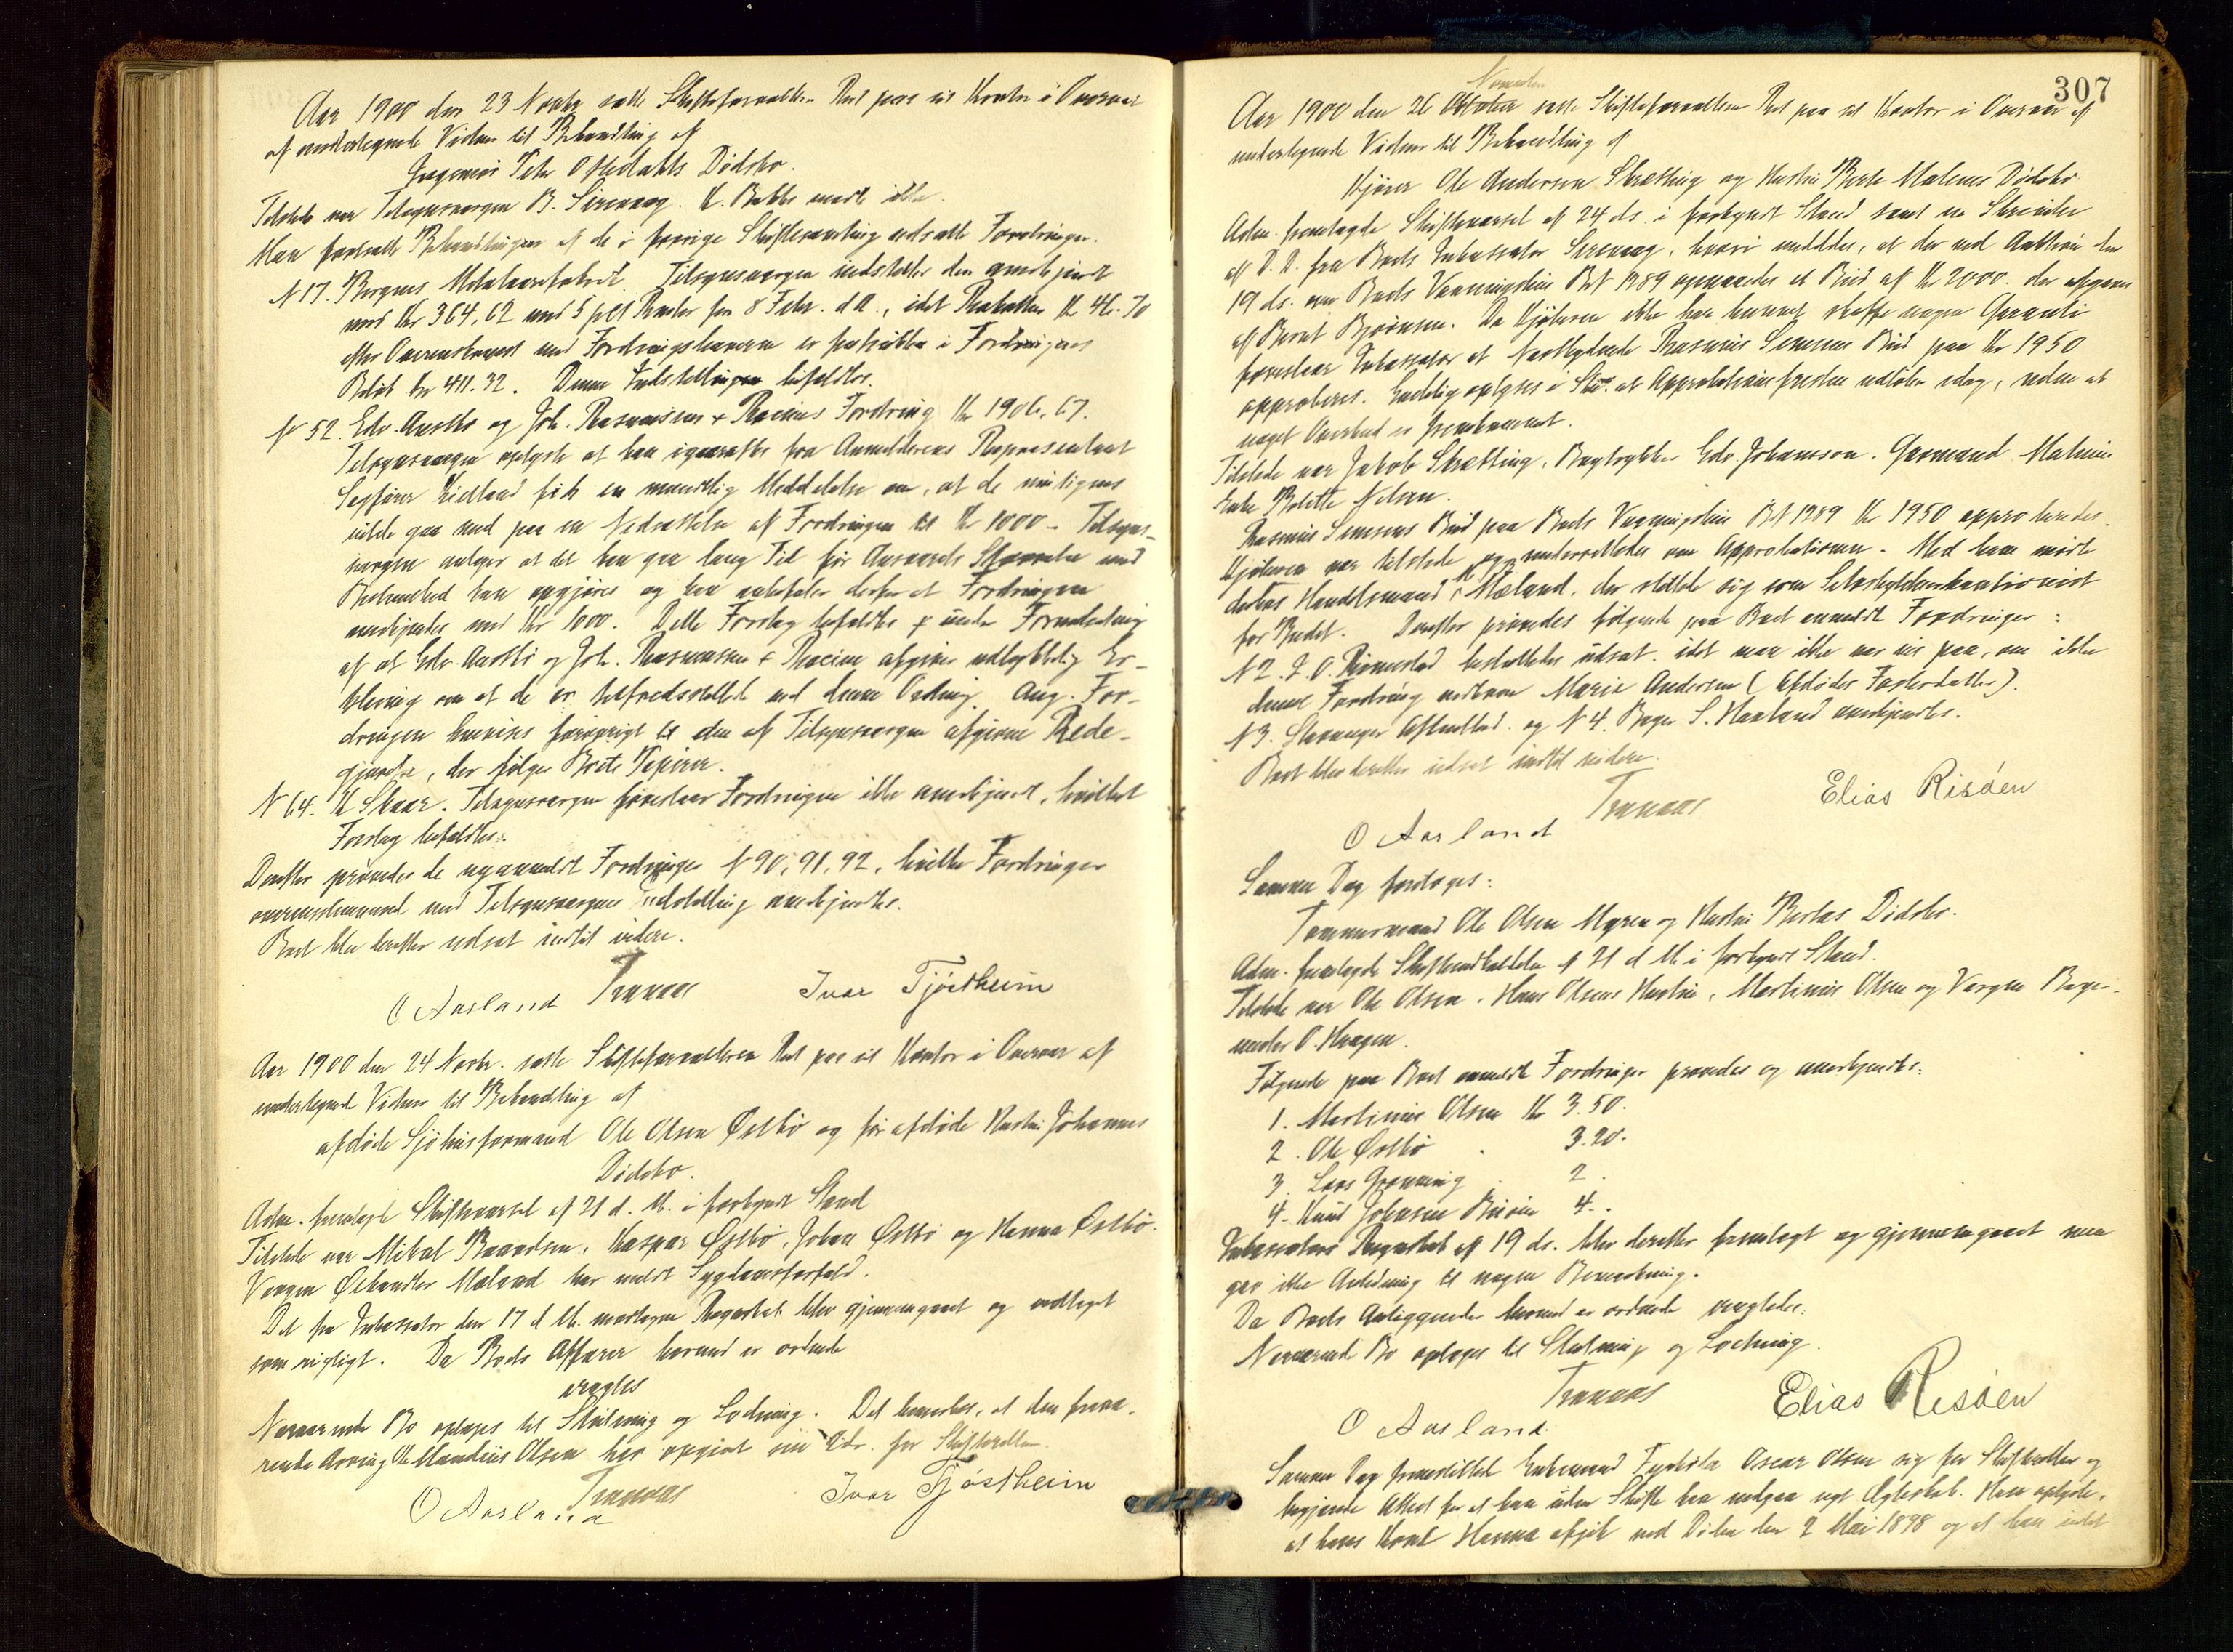 Aar 1900 den 23 Novbr satte Skifteforvalteren Ret paa sit Kontor i Overvær
af undertegnede Vidner til Behandling af
Ingeniør Peter Oftedahls Dødsbo.
Tilstede var Tilsynsværgen B. Sirevaag. K. Bakke mødte ikke.
Man fortsatte Behandlingen af de i forrige Skiftesamling udsatte Fordringer.
N 17. Bergens Metalvarefabrik. Tilsynsværgen indstiller den anerkjendt
med Kr 364,62 med 5 pCt Renter fra 8 Febr. d A., idet Rabatten Kr 46.70
efter Overenskomst med Fordringshaveren er fratrukken i Fordringens
Beløb Kr 411.32. Denne Indstilling bifaldtes.
N 52. Edv. Austbø og Joh. Rasmussen & Racines Fordring Kr 1906,67.
Tilsynsværgen oplyste at han igaaraftes fra Anmelderens Repræsentant
Sagfører Kielland fik en mundtlig Meddelelse om, at de muligens
vilde gaa med paa en Nedsættelse af Fordringen til Kr 1000 - Tilsyns-
værgen antager at det kan gaa lang Tid før Ansvarets Størrelse med
Bestemthed kan opgjøres og han anbefaler derfor at Fordringen
anerkjendes med Kr 1000. Dette Forslag bifaldtes under Forudsætning
af at Edv. Austbø og Joh. Rasmussen & Racine afgiver udtrykkelig Er-
klæring om at de er tilfredsstillet med denne Ordning. Ang. For-
dringen henvises forøvrigt til den af Tilsynsværgen afgivne Rede-
gjørelse, der følger Boets Papirer.
N 64. K Skaar. Tilsynsværgen foreslaar Fordringen ikke anerkjendt, hvilket
Forslag bifaldtes.
Derefter prøvedes de nyanmeldte Fordringer N 90, 91, 92, hvilke Fordringer
overensstemmende med Tilsynsværgens Indstilling anerkjendtes.
Boet blev derefter udsat indtil videre.
Tranaas
O Aasland Ivar Tjöstheim
Aar 1900 den 24 Novbr. satte Skifteforvalteren Ret paa sit Kontor i Overvær af
undertegnede Vidner til Behandling af
afdøde Sjøhusformand Ole Olsen Østbø og før afdøde Hustru Johannes
Dødsbo.
Adm. fremlagde Skiftevarsel af 21 d. M. i forkyndt Stand
Tilstede var Mikal Baardsen, Kaspar Østbø, Johan Østbø og Hanna Østbø.
Værgen Ølhandler Mæland har meldt Sygdomsforfald.
Det fra Inkassator den 17 d M. modtagne Regnskab blev gjennemgaaet og vedtaget
som rigtigt. Da Boets Affærer hermed er ordnede
vragtes
Nærværende Bo optages til Slutning og Lodning. Det bemerkes, at den fravæ-
rende Arving Ole Mandius Olsen har opgivet sin Adr. for Skifteretten.
Tranaas
O Aasland Ivar Tjöstheim
307
November
Aar 1900 den 26 Oktober satte Skifteforvalteren Ret paa sit Kontor i Overvær af
undertegnede Vidner til Behandling af
Kjører Ole Andersen Skretting og Hustru Berte Malenes Dødsbo
Adm. fremlagde Skiftevarsel af 24 ds. i forkyndt Stand samt en Skrivelse
af D. D. fra Boets Inkassator Sirevaag, hvori meddeles, at der ved Auktion den
19 ds. over Boets Vaaningshus Bet 1289 opnaaedes et Bud af Kr 2000. der afgaves
af Bernt Bjørnsen. Da Kjøberen ikke har kunnet skaffe nogen Garanti
foreslaar Inkassator at Næstbydende Rasmus Simsens Bud paa Kr 1950
approberes. Endelig oplyses i Skr. at Approbationsfristen udløber idag, uden at
noget Overbud er fremkommet.
Tilstede var Jakob Skretting, Bogtrykker Edv. Johansson. Formand Malmin
Enke Bolette Nilsen.
Rasmus Simsens Bud paa Boets Vaaningshus Bet 1289 Kr 1950 approberedes.
Kjøberen var tilstede og underrettedes om Approbationen. Med ham mødte
Handelsmand Mæland, der stillede sig som Selvskyldnerkautionist
for Budet. Derefter prøvedes følgende paa Boet anmeldte Fordringer:
N 2. J. O. Rennestad besluttedes udsat. idet man ikke var vis paa, om ikke
denne Fordring vedkom Marie Andersen (Afdødes Fosterdatter).
N 3. Stavanger Aftenblad. og N 4. Bager S. Haaland anerkjendtes.
Boet blev derefter udsat indtil videre.
Tranaas Elias Risøen
O Aasland
Samme Dag foretoges:
Tømmermand Ole Olsen Myren og Hustru Bertas Dødsbo.
Adm. fremlagde Skifteindkaldelse af 21 d M. i forkyndt Stand.
Tilstede var Ole Olsen, Hans Olsens Hustru, Martinius Olsen og Værgen Bager-
mester O. Haagen.
Følgende paa Boet anmeldte Fordringer prøvedes og anerkjendtes:
1. Martinius Olsen Kr 3.50.
2. Ole Østbø 3.20.
3. Lars Grønning 2.
4. Knud Johnsen 4.
Inkassators Regnskab af 19 ds. blev derefter fremlagt og gjennemgaaet men
gav ikke Anledning til nogen Bemerkning.
Da Boets Anliggender hermed er ordnede vragtes:
Nærværende Bo optages til Slutning og Lodning.
Tranaas Elias Risøen
O Aasland
Samme Dag fremstillede Enkemand Oscar Olsen sig for Skifteretten og
begjærede Attest for at han uden Skifte kan indgaa nyt Ægteskab. Han oplyste,
at hans Kone Hanna afgik ved Døden den 2 Mai 1898 og at han intet